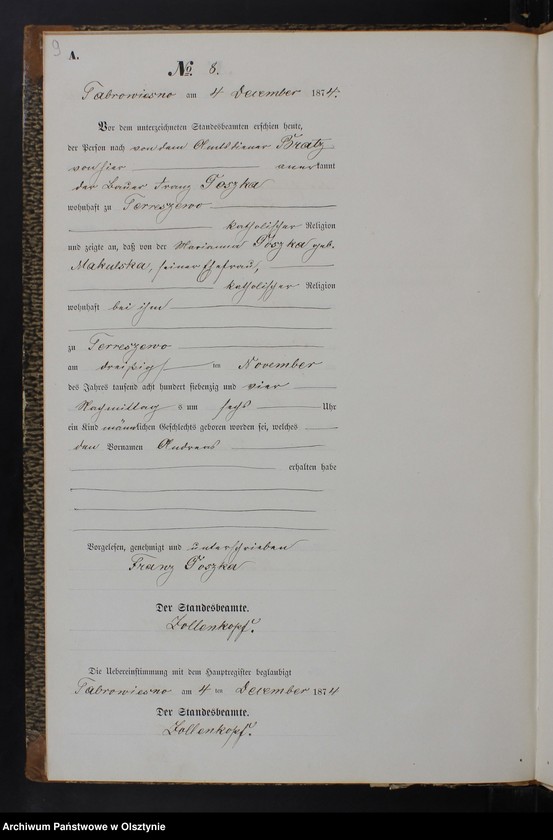 9
A.
№ 8.
Tabrowiesno am 4 December 1874.
Vor dem unterzeichneten Standesbeamten erschien heute,
der Person nach von dem Amtsdiener Bratz
von hier anerkannt
der Bauer Franz Toszka
wohnhaft zu Terreszewo
katholischer Religion
und zeigte an, daß von der Marianna Toszka geb.
Makulska, seiner Ehefrau,
katholischer Religion
wohnhaft bei ihm
zu Terreszewo
am dreißig ten November
des Jahres tausend acht hundert siebenzig und vier
Nachmittag s um sechs Uhr
ein Kind männlichen Geschlechts geboren worden sei, welches
den Vornamen Andreas
erhalten habe
Vorgelesen, genehmigt und unterschrieben
Franz Toszka
Der Standesbeamte.
Zollenkopf.
Die Uebereinstimmung mit dem Hauptregister beglaubigt
Tabrowiesno am 4 ten December 1874
Der Standesbeamte.
Zollenkopf.
Archiwum Państwowe w Olsztynie